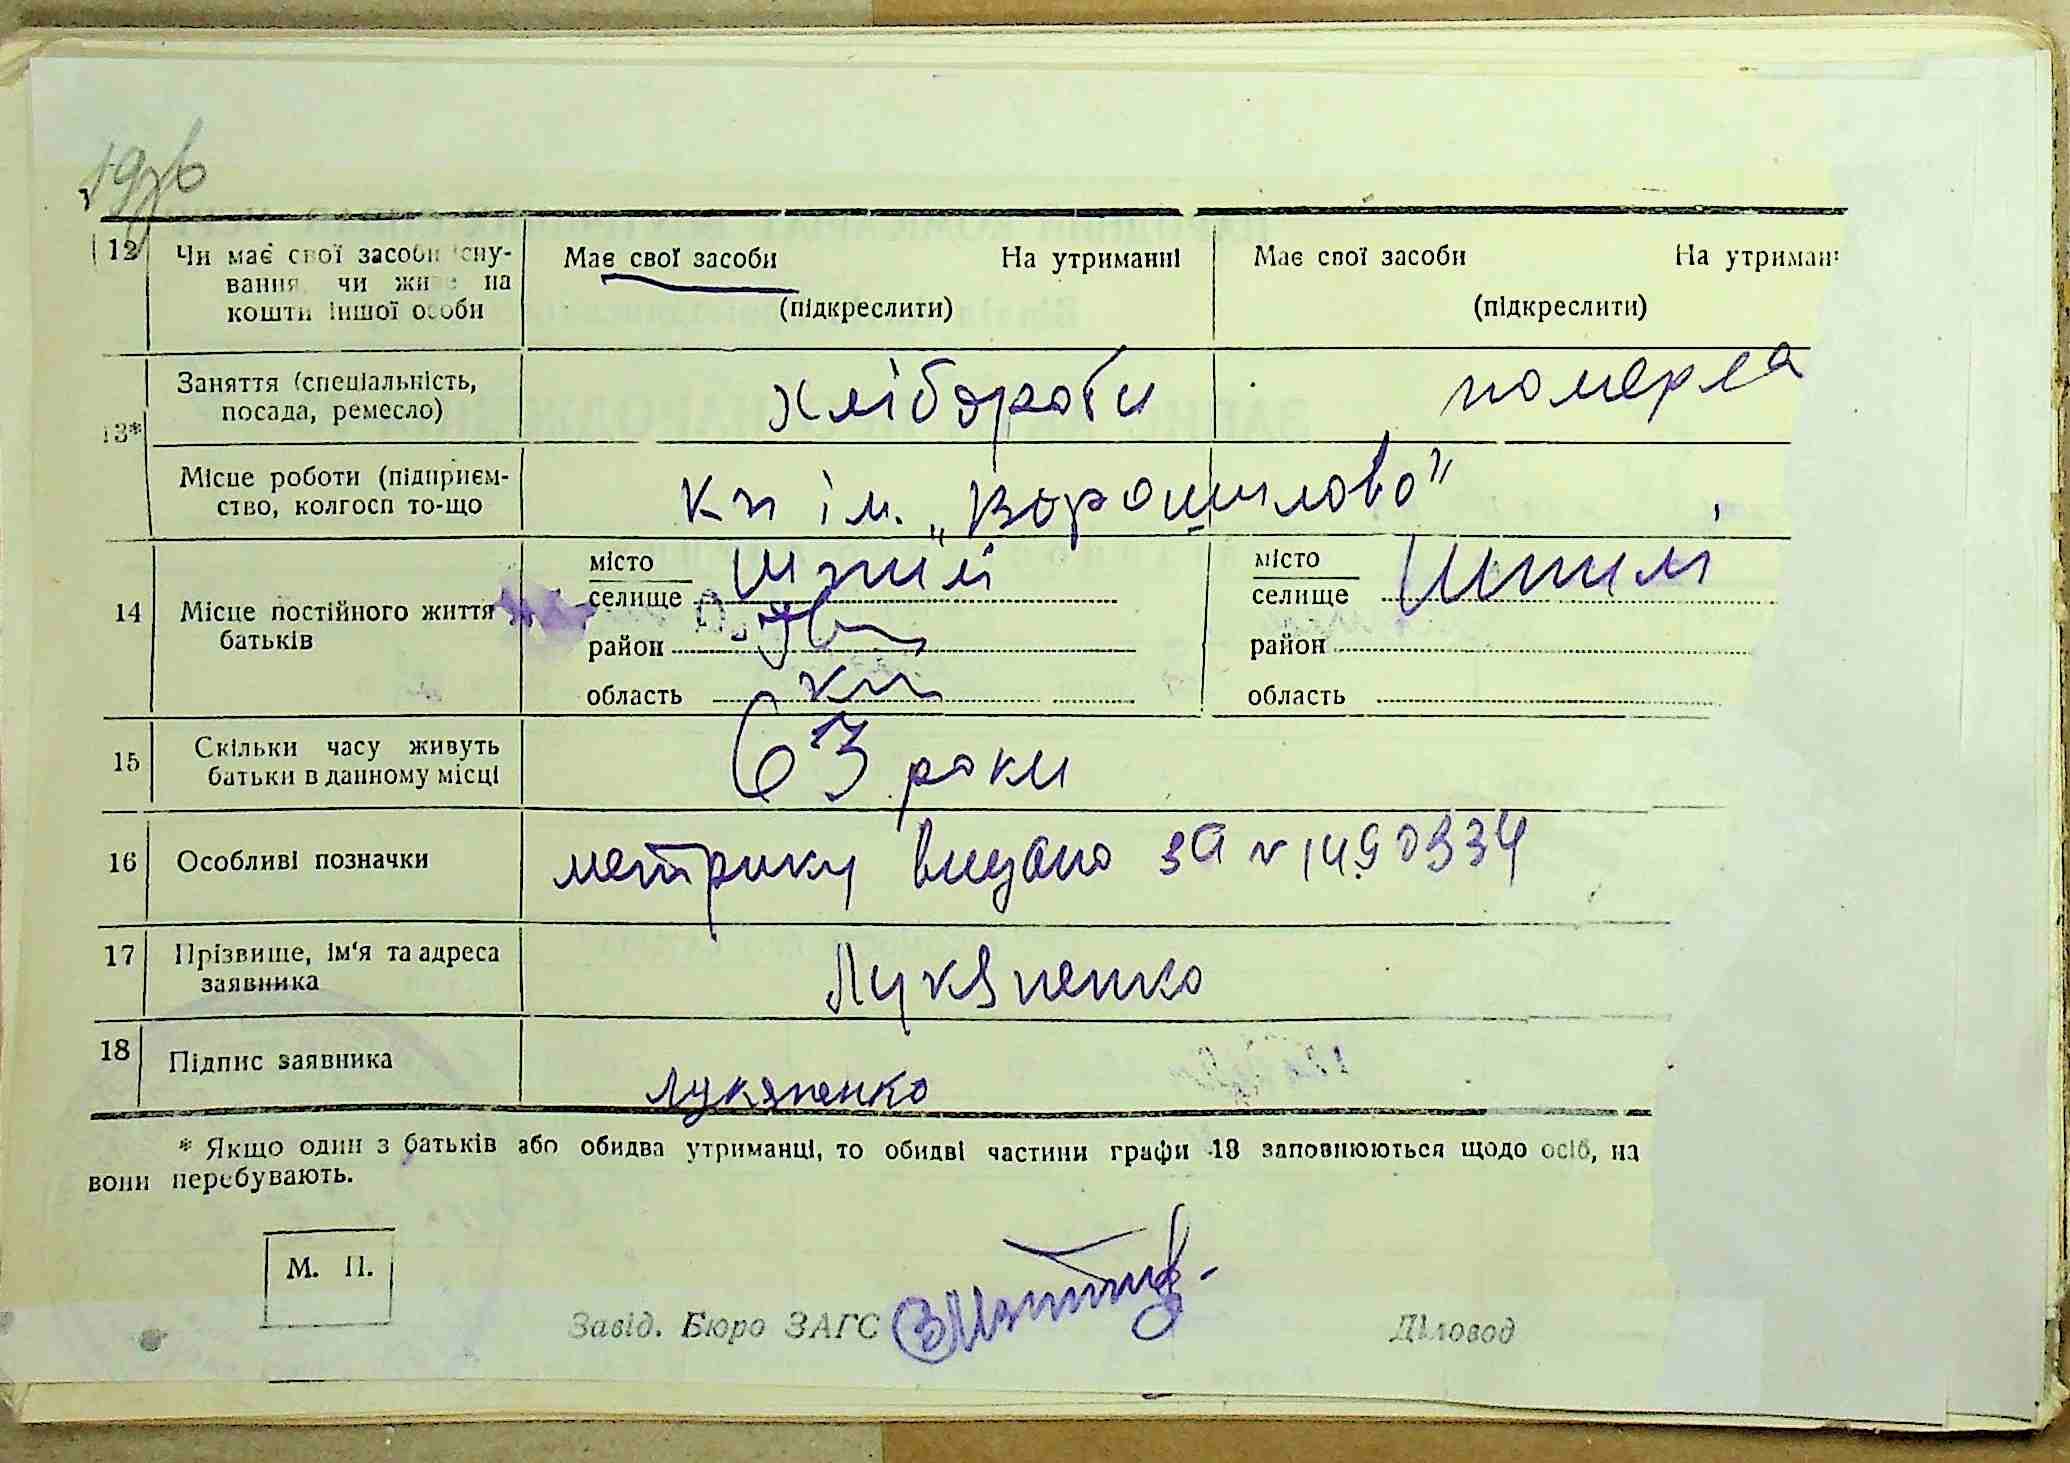 12 Чи має свої засоби існу- Має свої засоби На утриманні Має свої засоби На утриман
вання, чи живе на
кошти іншої особи (підкреслити) (підкреслити)
13* Заняття (спеціальність,
посада, ремесло) хлібороби померла
Місце роботи (підприєм-
ство, колгосп то-що кп ім. „Ворошилово"
14 Місце постійного життя
батьків
місто Шпилі місто Шпилі
селище селище
район район
область область
15 Скільки часу живуть
батьки в данному місці 63 роки
16 Особливі позначки метрику видано за № 1490334
17 Прізвище, ім'я та адреса
заявника Лукяненко
18 Підпис заявника Лукяненко
* Якщо один з батьків або обидва утриманці, то обидві частини графи 18 заповнюються щодо осіб, на
вони перебувають.
М. П.
Завід. Бюро ЗАГС Діловод